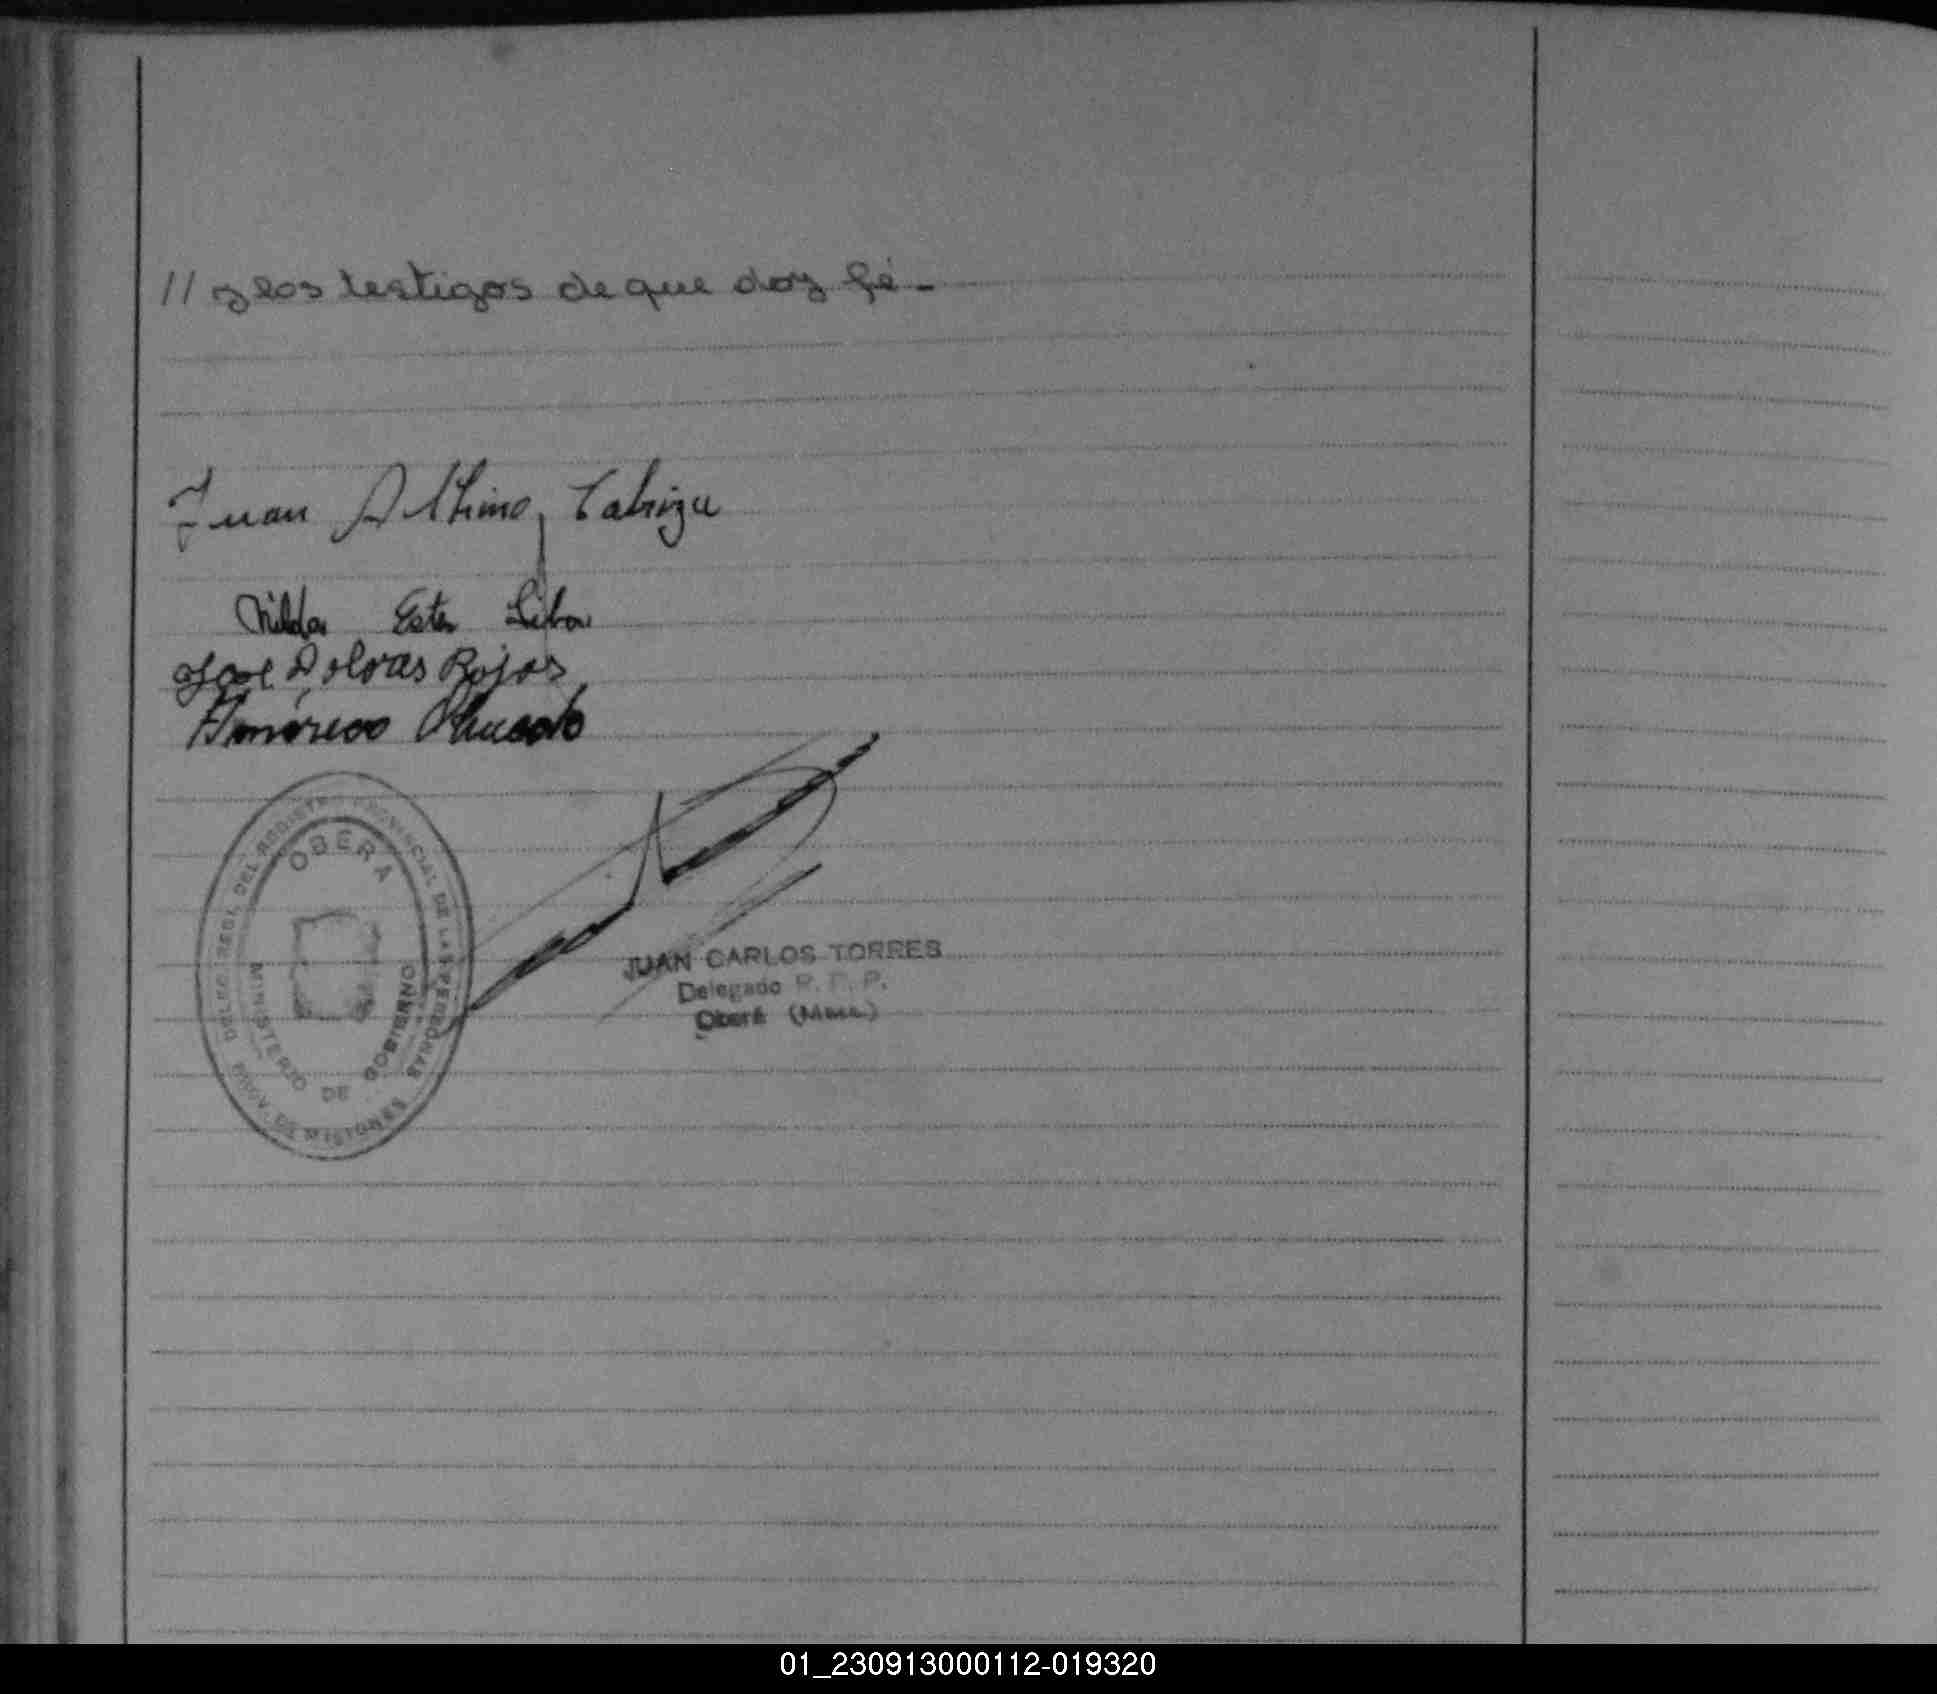 // y los testigos de que doy fé -
Juan Albino Cabriza
Nilda Ester Silva
José Dolores Rojas
Américo
DELEG. REGL. DEL REGISTRO PROVINCIAL DE LAS PERSONAS
PROV. DE MISIONES
OBERA
MINISTERIO DE GOBIERNO
JUAN CARLOS TORRES
Delegado R. P. P.
Oberá (Mnes.)
01_230913000112-019320